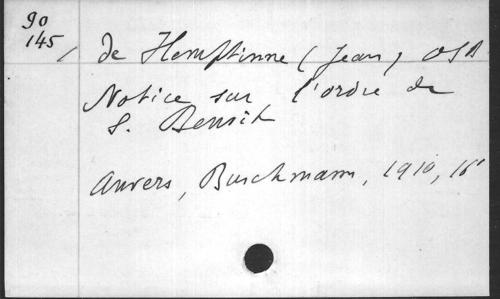 90
145/
de Hemptinne (Jean) OSB
Notice sur l'ordre de
S. Benoit
Anvers, Buschmann, 1910, 16°